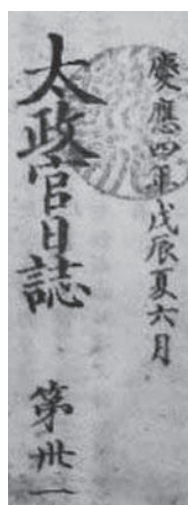 慶應四年戊辰夏六月
太政官日誌 第卅一